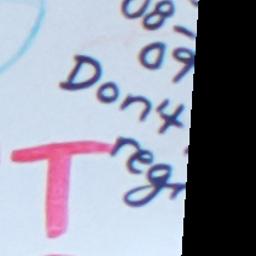 08-
09
Don4
reg
T